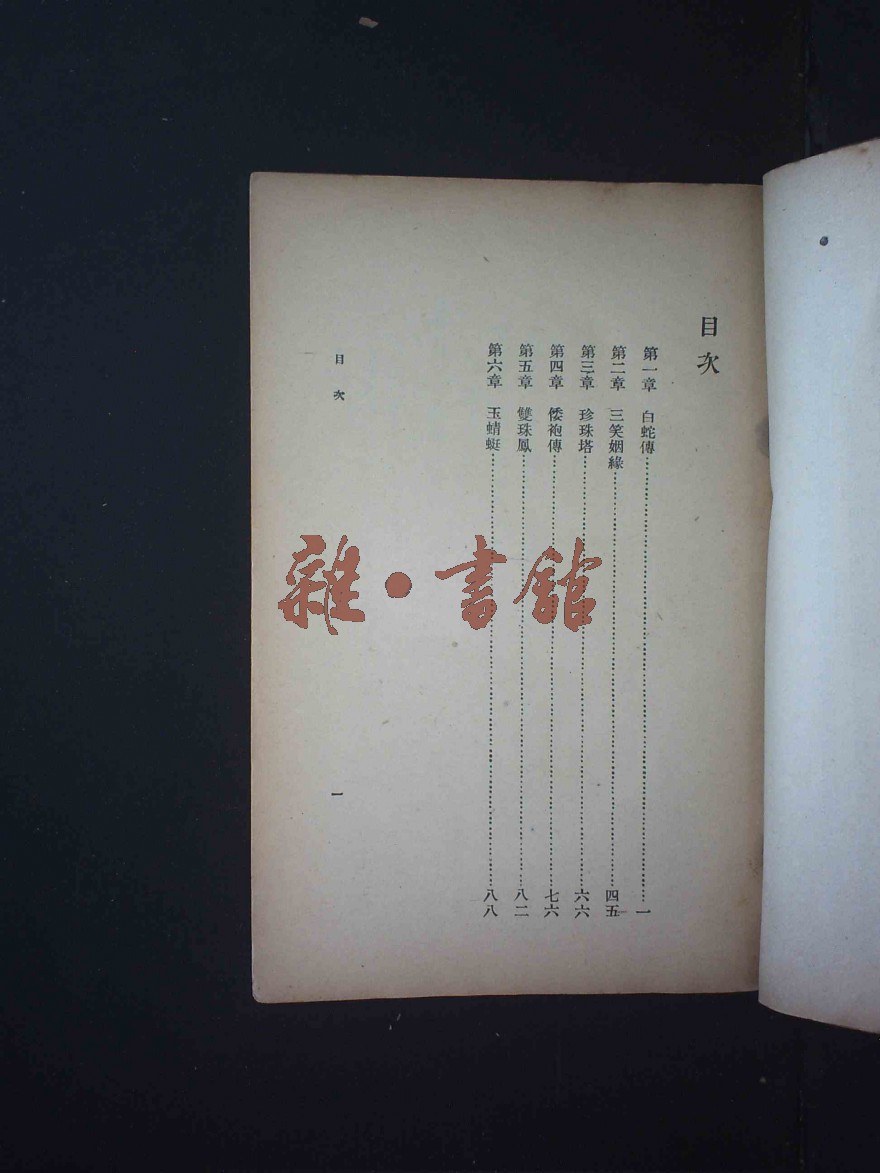 目次
第一章　白蛇傳…………一
第二章　三笑姻緣…………四五
第三章　珍珠塔…………六六
第四章　倭袍傳…………七六
第五章　雙珠鳳…………八二
第六章　玉蜻蜓…………八八
目次
一
雜·書館